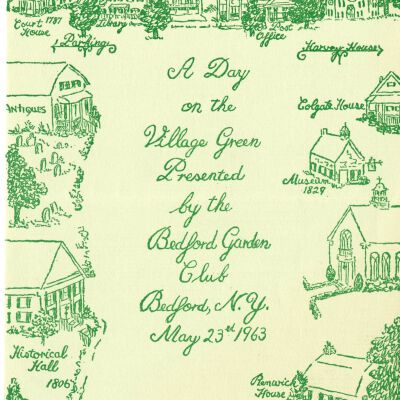 Court 1787
House
Library
Post
Office
Parking
Harvey House
A Day
on the
Village Green
Presented
by the
Bedford Garden
Club
Bedford, N.Y.
May 23rd 1963
ANTIQUES
Colgate House
Museum
1829
Historical
Hall
1806
Renwick
House